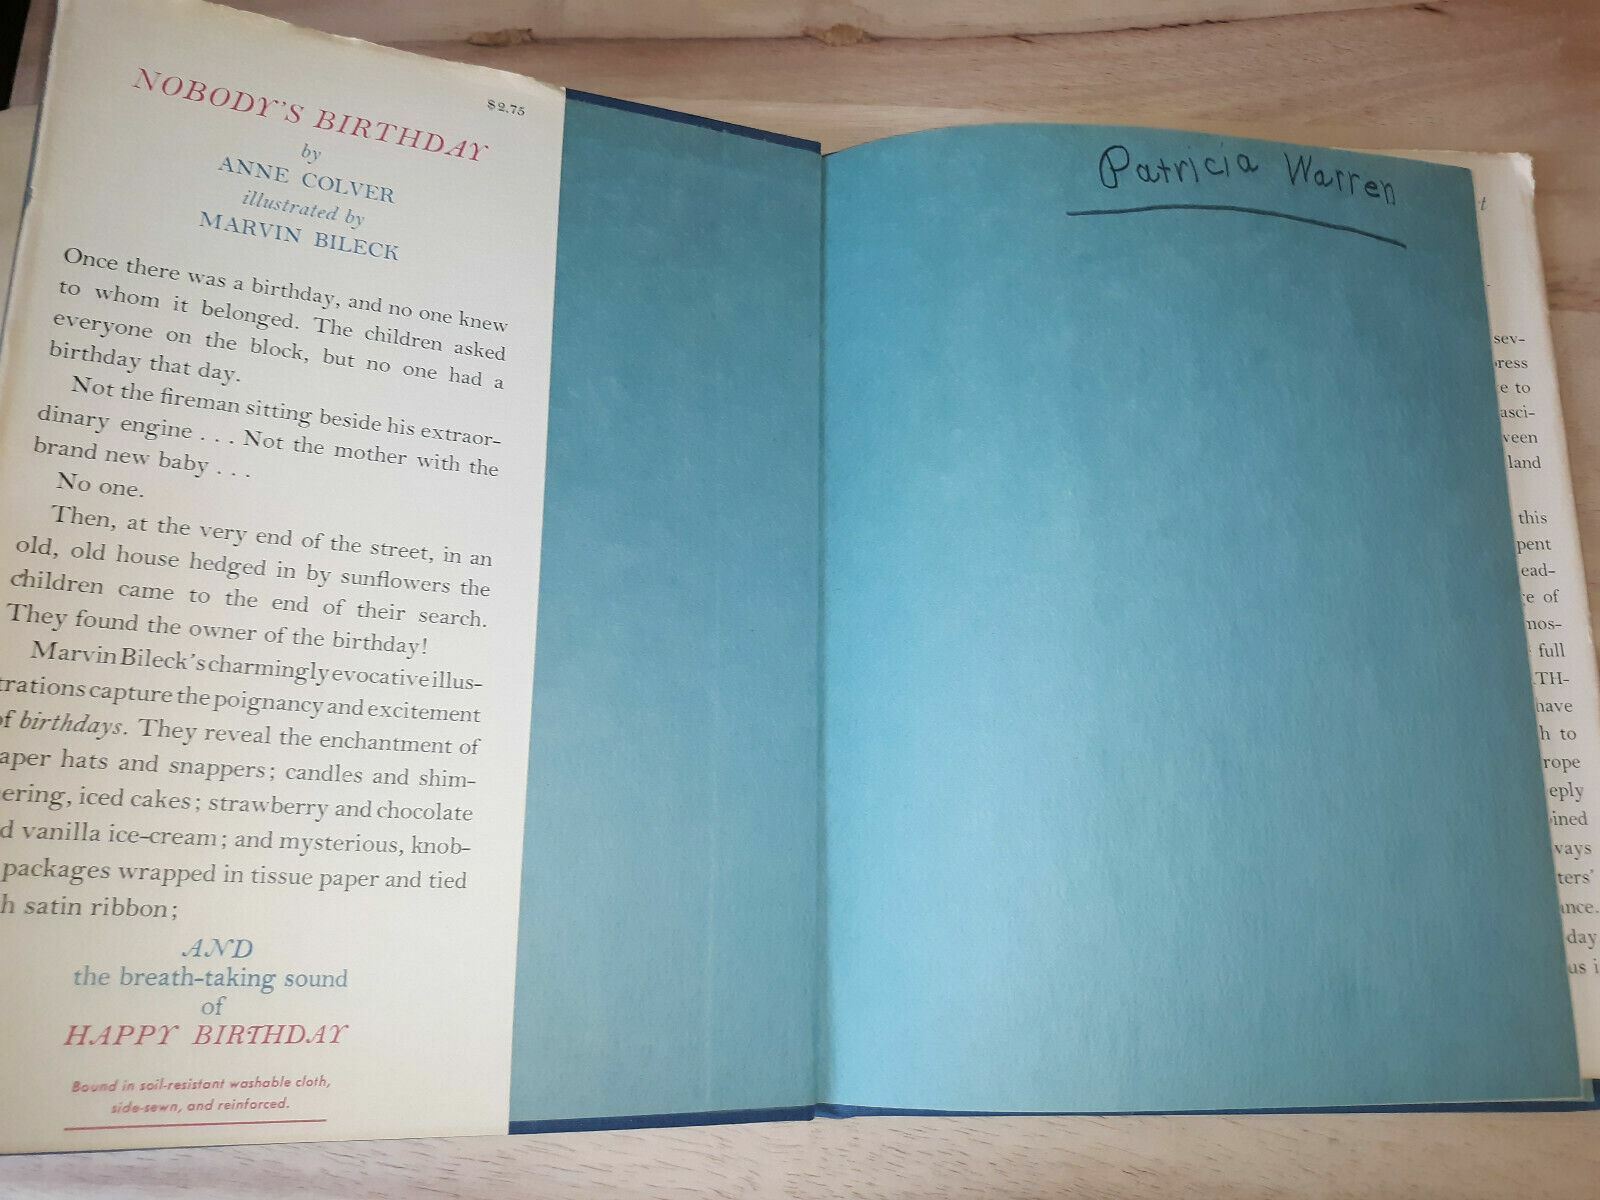 NOBODY'S BIRTHDAY
$2.75
by
ANNE COLVER
illustrated by
MARVIN BILECK
Once there was a birthday, and no one knew
to whom it belonged. The children asked
everyone on the block, but no one had a
birthday that day.
Not the fireman sitting beside his extraor-
dinary engine . . . Not the mother with the
brand new baby . . .
No one.
Then, at the very end of the street, in an
old, old house hedged in by sunflowers the
children came to the end of their search.
They found the owner of the birthday!
Marvin Bileck's charmingly evocative illus-
trations capture the poignancy and excitement
of birthdays. They reveal the enchantment of
aper hats and snappers; candles and shim-
ering, iced cakes; strawberry and chocolate
d vanilla ice-cream; and mysterious, knob-
packages wrapped in tissue paper and tied
h satin ribbon;
AND
the breath-taking sound
of
HAPPY BIRTHDAY
Bound in soil-resistant washable cloth,
side-sewn, and reinforced.
Patricia Warren
t
sev-
ress
e to
asci-
veen
land
this
pent
ead-
e of
nos-
full
TH-
have
h to
rope
eply
ined
ways
ters'
ance.
day
us i